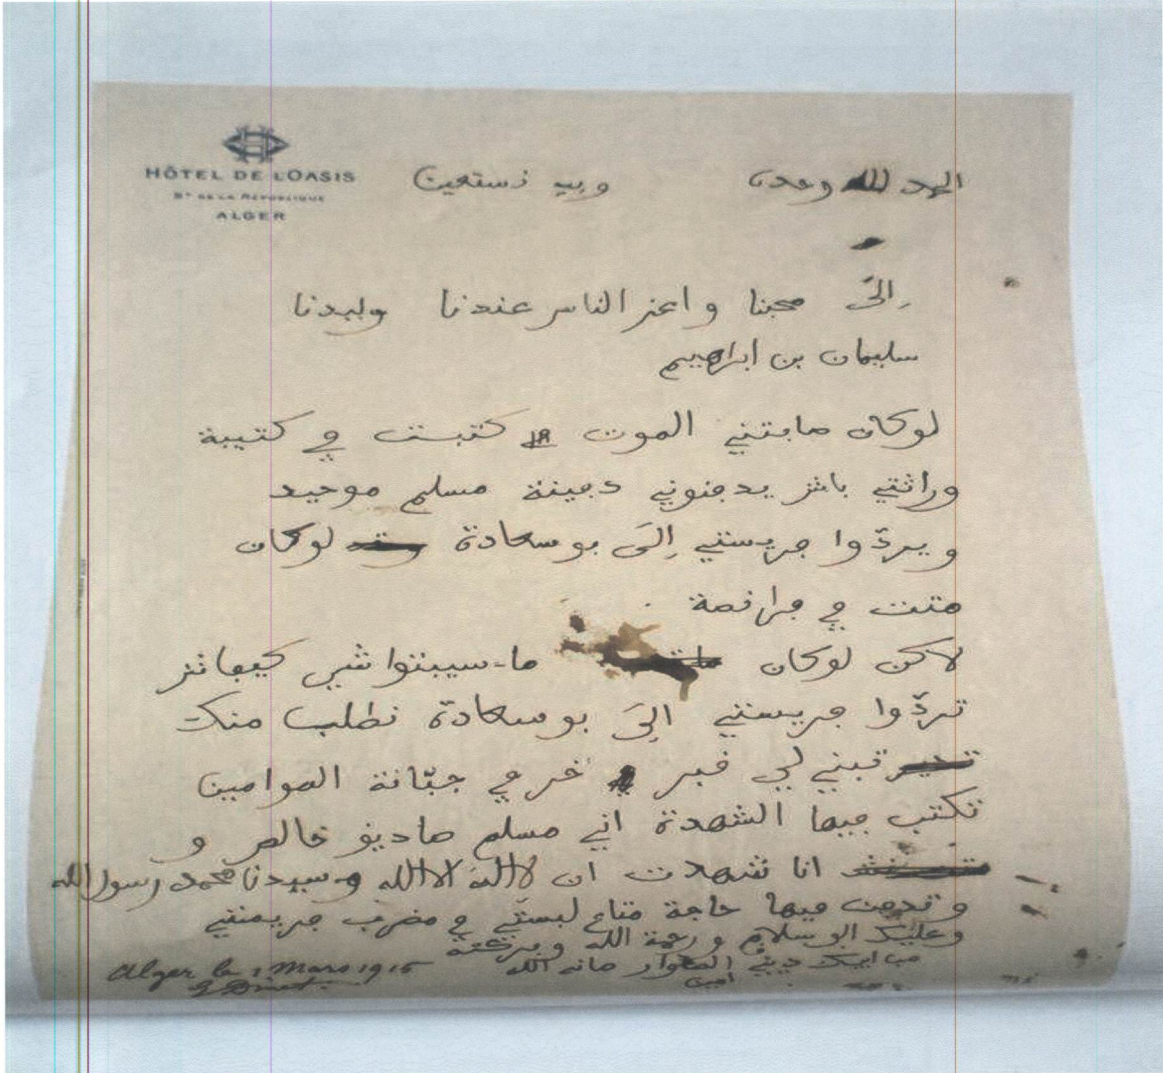 HÔTEL DE L'OASIS
Bd DE LA RÉPUBLIQUE
ALGER
الحمد لله وحده وبه نستعين
إلى محبنا واعز الناس عندنا وليدنا
سليمان بن ابراهيم
لوكان صابتني الموت كتبت في كتيبة
وراثتي باش يدفنوني دفينة مسلم موحيد
ويردّوا جريستي إلى بوسعادة لوكان
متت في فرانصة
لاكن لوكان ما سيبتوا شي كيفاش
تردّوا جريستي إلى بوسعادة نطلب منك
تبني لي قبر في جبّانة الموامين
تكتب فيها الشهدة اني مسلم صاديق خالص و
انا شهدت ان لا اله الا الله وسيدنا محمد رسول الله
وتدفن فيها حاجة متاع لبستي في مضرب جريستي
وعليك السلام ورحمة الله وبركته
Alger le 1 Mars 1915
E Dinet
امين